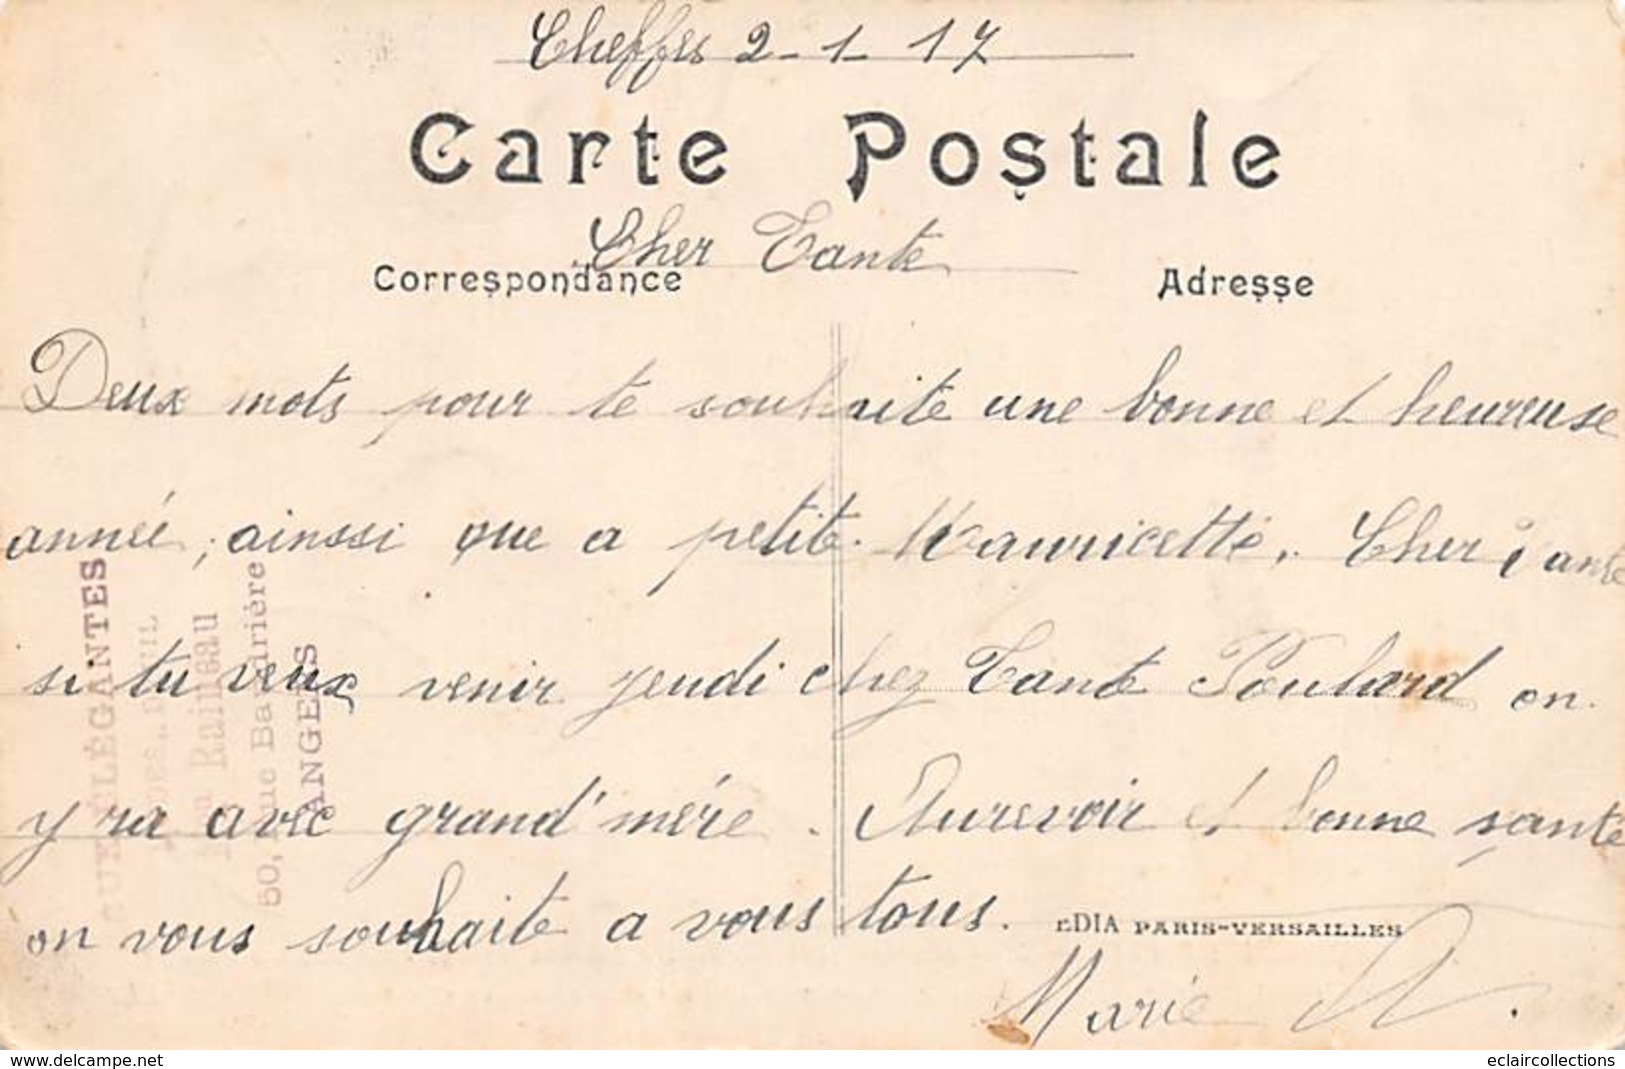 Cheffes 2-1-17
Carte Postale
Cher Tante
Correspondance
Adresse
Deux mots pour te souhaite une bonne et heureuse
année, ainssi que a petite Mauricette. Cher Tante
si tu veux venir jeudi chez Tante Poulard on
y ra avec grand'mére. Aurevoir et bonne sante
on vous souhaite a vous tous.
EDIA PARIS-VERSAILLES
Marie
ÉLÉGANTES
Raineau
50, Rue Baudrière
ANGERS
Visitez www.delcampe.net
eclaircollections